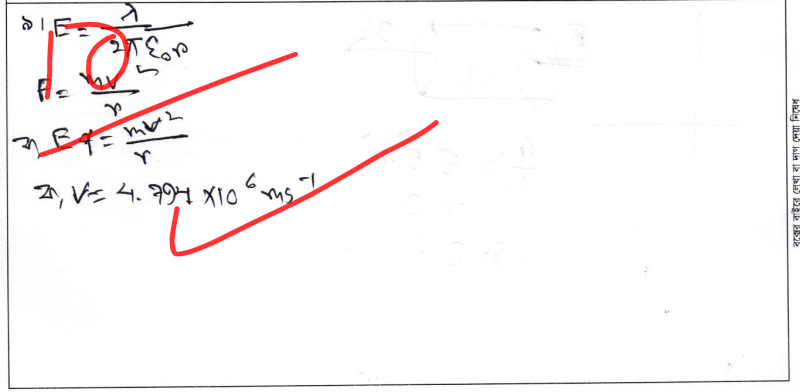 ৯। E = λ / 2π ε₀ r
F = mv² / r
বা, Eq = mv² / r
বা, v = 4.794 × 10⁶ ms⁻¹
10
বক্সের বাইরে লেখা বা দাগ দেয়া নিষেধ